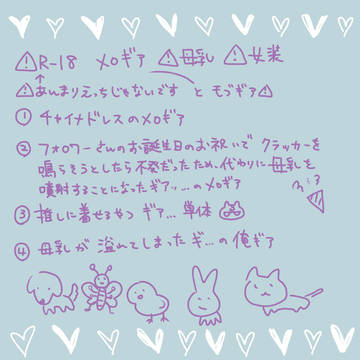 ⚠R-18 メロギア ⚠母乳 ⚠女装
⚠あんまりえっちじゃないです と モブギア⚠
① チャイナドレスのメロギア
② フォロワーさんのお誕生日のお祝いで クラッカーを
鳴らそうとしたら不発だったため、代わりに母乳を
噴射することになったギアッ…のメロギア
③ 推しに着せるやつ ギア… 単体
④ 母乳が 溢れてしまったギ…の俺ギア